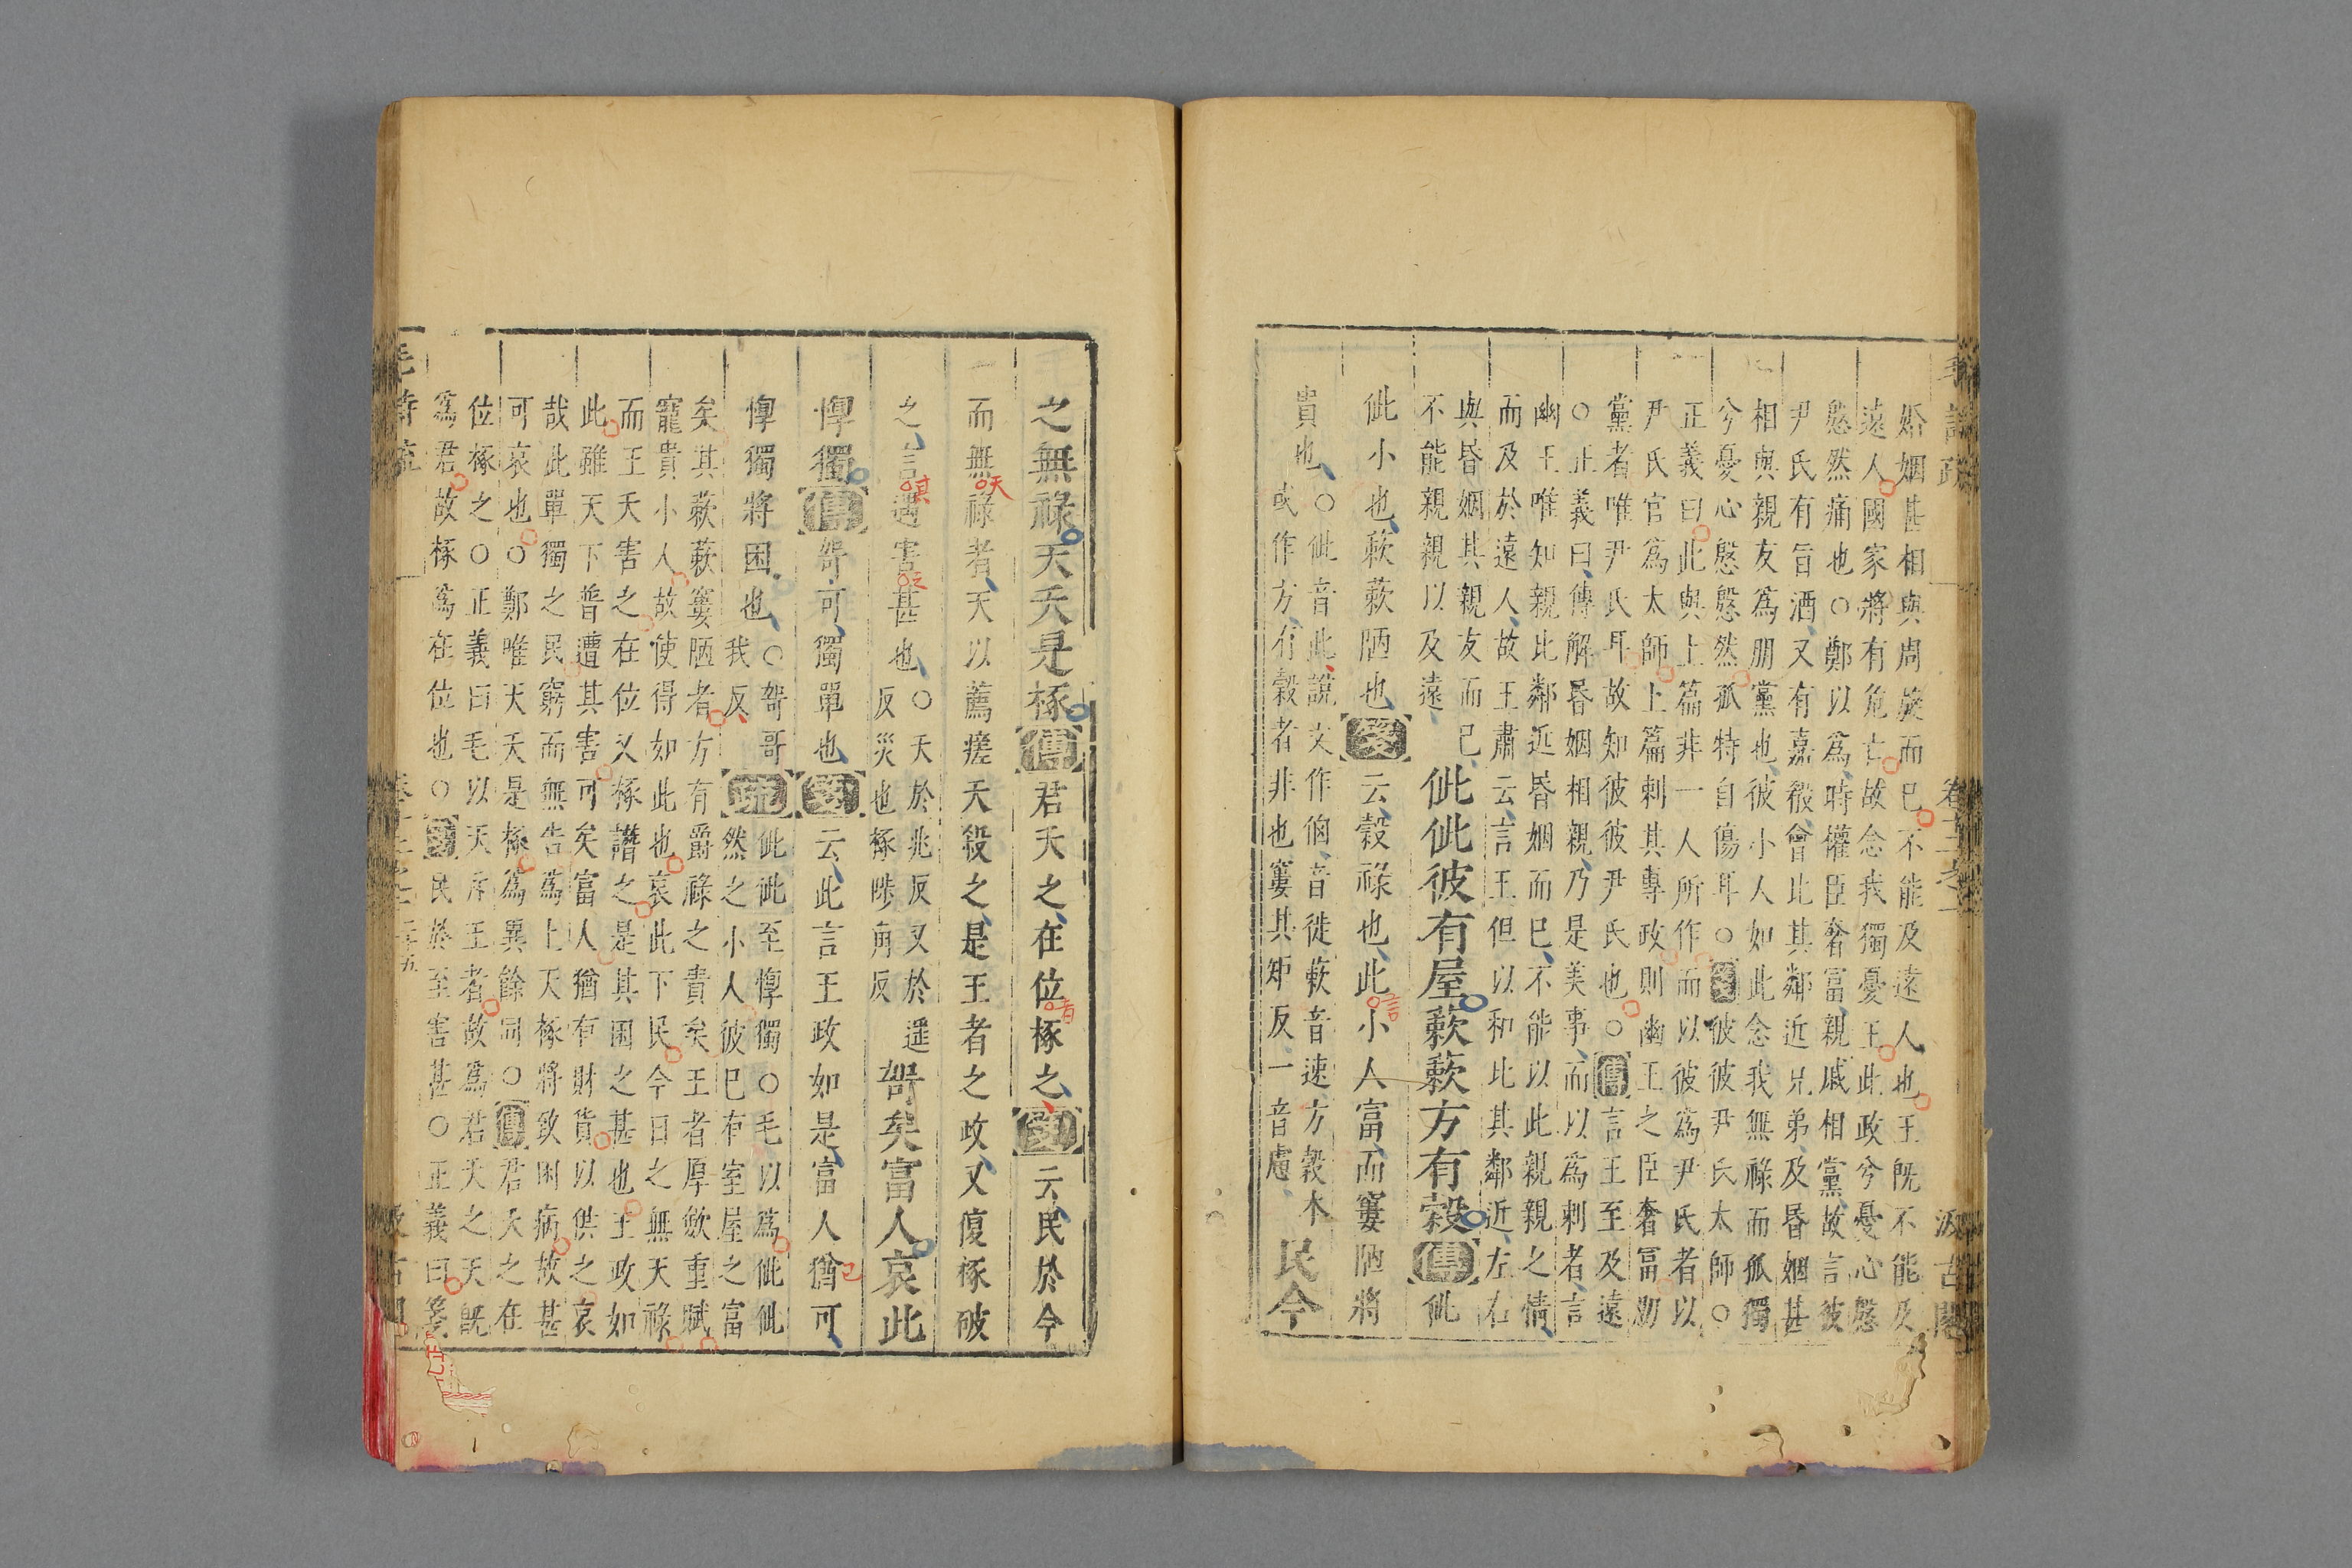 毛詩疏 卷十二之一 汲古閣
婚姻甚相與周旋而已不能及遠人也王既不能及
遠人國家將有危亡故念我獨憂王此政兮憂心慇
慇然痛也○鄭以爲時權臣奢富親戚相黨故言彼
尹氏有旨酒又有嘉殽會比其鄰近兄弟及昏姻甚
相與親友爲朋黨也彼小人如此念我無祿而孤獨
兮憂心慇慇然孤特自傷耳○箋彼彼尹氏太師○
正義曰此與上篇非一人所作而以彼爲尹氏者以
尹氏官爲太師上篇刺其專政則幽王之臣奢富朋
黨者唯尹氏耳故知彼彼尹氏也○傳言王至及遠
○正義曰傳解昏姻相親乃是美事而以爲刺者言
幽王唯知親比鄰近昏姻而已不能以此親親之情
而及於遠人故王肅云言王但以和比其鄰近左右
與昏姻其親友而已
不能親親以及遠 佌佌彼有屋蔌蔌方有穀傳佌
佌小也蔌蔌陋也箋云穀祿也此言小人富而窶陋將
貴也○佌音此說文作㑊音徙蔌音速方穀本
或作方有穀者非也窶其矩反一音慮 民今
之無祿天夭是椓傳君夭之在位者椓之箋云民於今
而無天祿者天以薦瘥夭殺之是王者之政又復椓破
之言其遇害之甚也○夭於兆反又於遥
反災也椓陟角反 哿矣富人哀此
惸獨傳哿可獨單也箋云此言王政如是富人猶已可
惸獨將困也○哿哥
我反 疏佌佌至惸獨○毛以爲佌佌
然之小人彼已有室屋之富
矣其蔌蔌窶陋者方有爵祿之貴矣王者厚斂重賦
寵貴小人故使得如此也哀此下民今日之無天祿
而王夭害之在位又椓譖之是其困之甚也王政如
此雖天下普遭其害可矣富人猶有財貨以供之哀
哉此單獨之民窮而無告爲上夭椓將致困病故甚
可哀也○鄭唯天夭是椓爲異餘同○傳君夭之在
位椓之○正義曰毛以天斥王者故爲君夭之天既
爲君故椓爲在位也○箋民於至害甚○正義曰箋
毛詩疏 卷十二之一 二十五 汲古閣